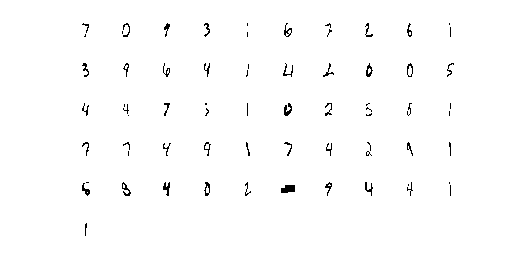 7 0 9 3 1 6 7 2 6 1
3 9 6 9 1 4 2 0 0 5
4 4 7 5 1 0 2 5 8 1
7 7 4 9 1 7 4 2 9 1
6 3 4 0 2 9 4 4 1
1